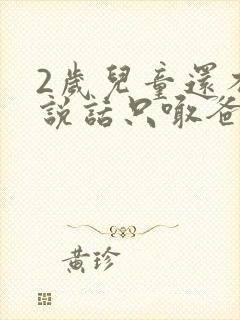 2歲兒童還不
說話只爸
黃珍